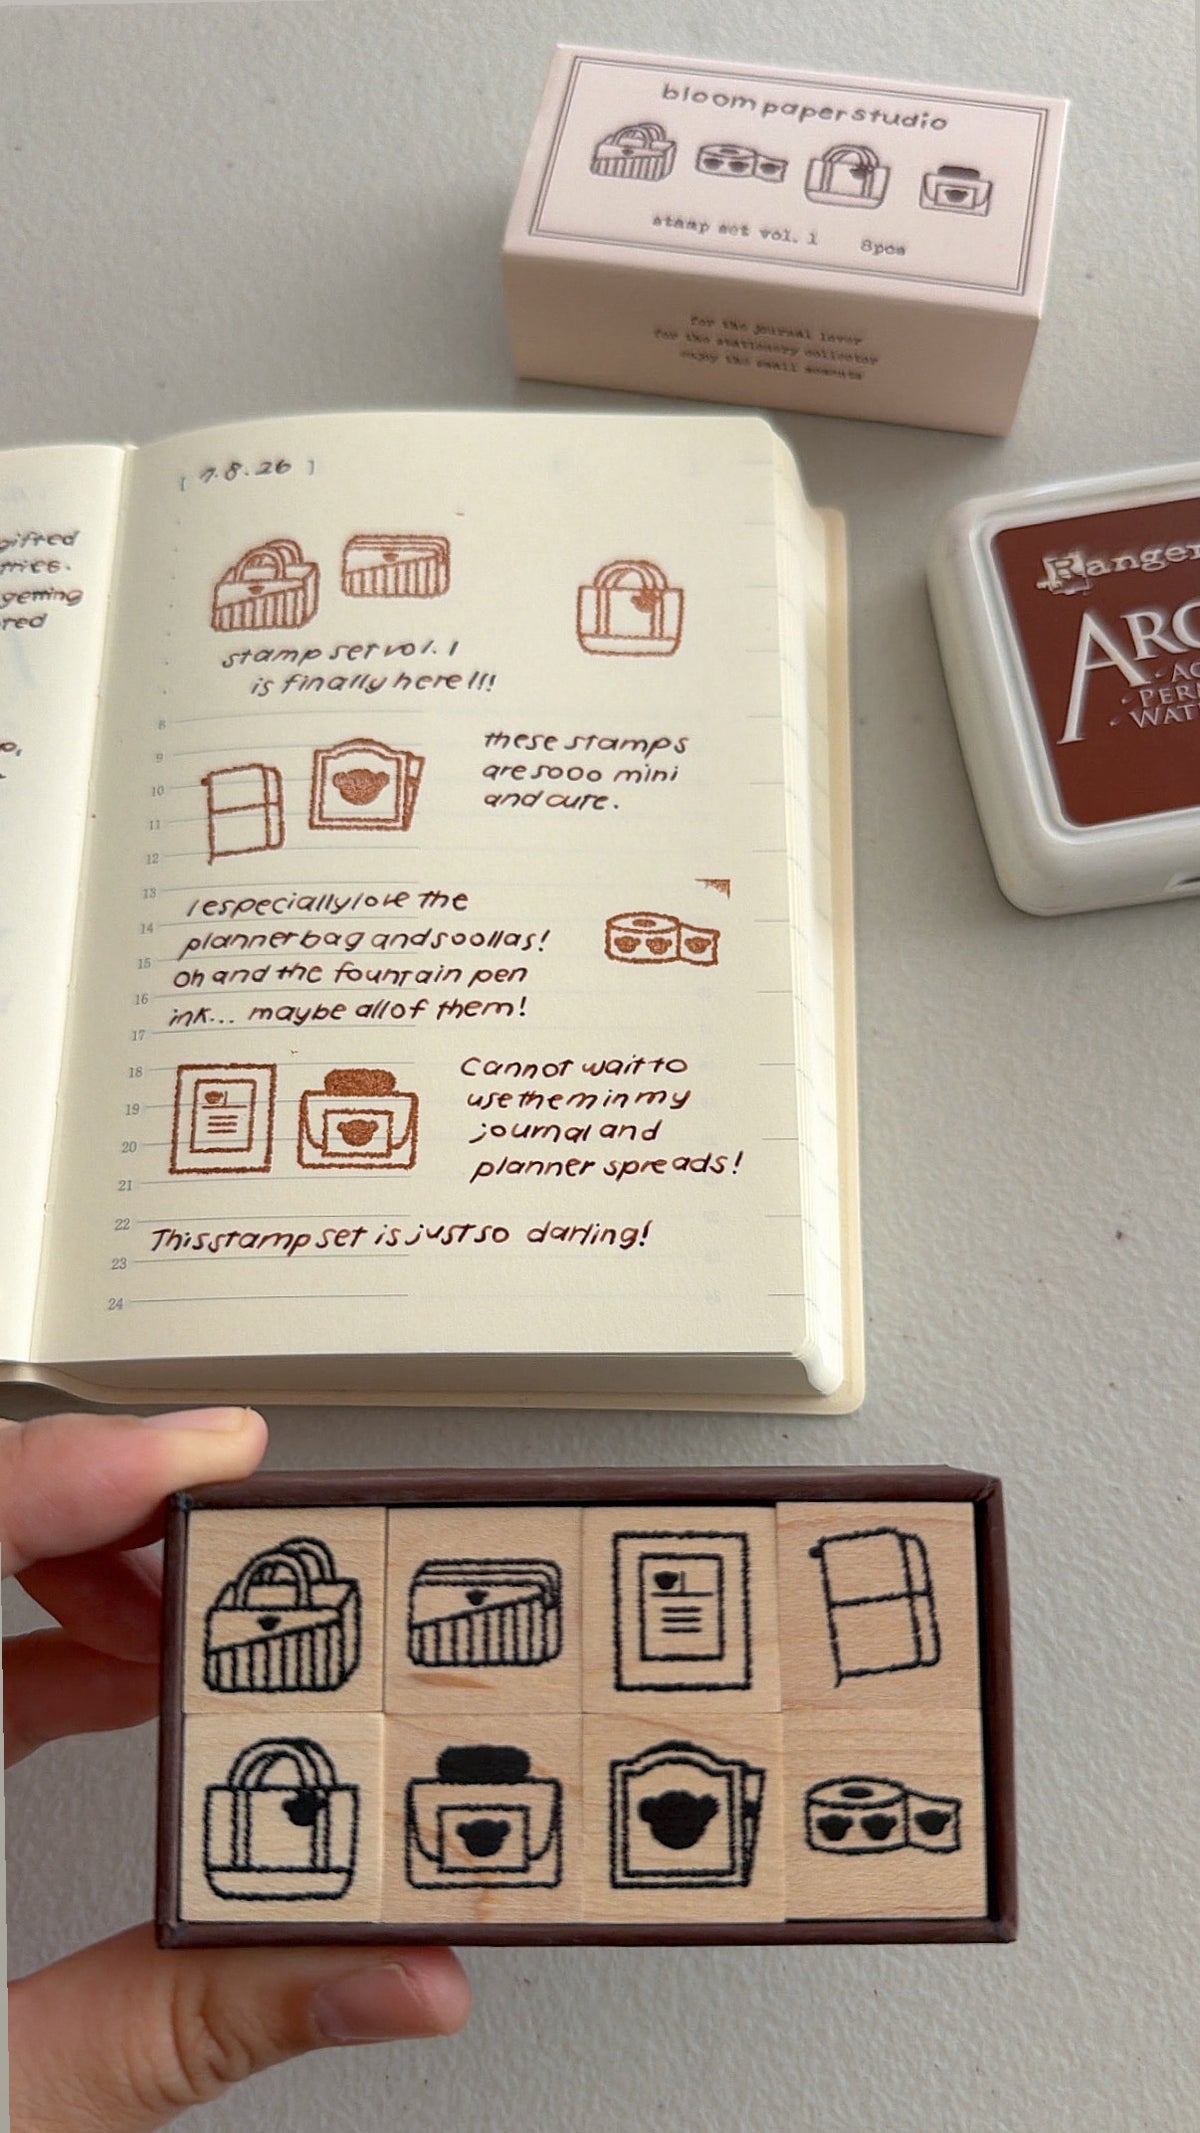 bloom paper studio
stamp set vol. 1 8pcs
for the journal lover
for the stationery collector
enjoy the small moments
[ 7.8.26 ]
gifted
getting
stamp set vol. 1
is finally here!!!
8
9
10
11
12
13
14
15
16
17
18
19
20
21
22
23
24
these stamps
are sooo mini
and cute.
I especially love the
planner bag and soollas!
Oh and the fountain pen
ink... maybe all of them!
Cannot wait to
use them in my
journal and
planner spreads!
This stamp set is just so darling!
Ranger
ARC